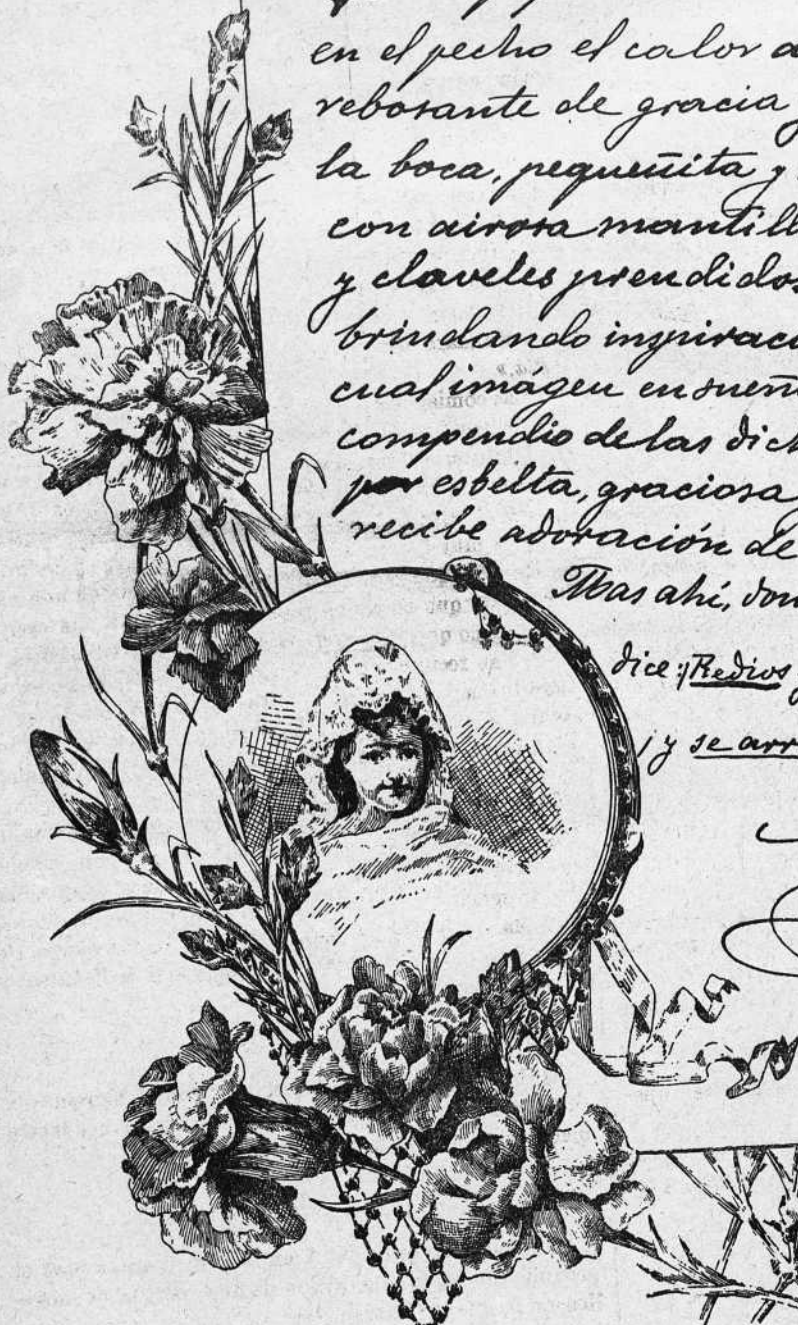 en el pecho el calor
rebosante de gracia
la boca, pequeñita y
con airosa mantill
y claveles prendidos
brindando inspirac
cual imágen ensueñ
compendio de las dic
por esbelta, graciosa
recibe adoración de
Mas ahí, don
dice: ¡Redios
¡y se arr